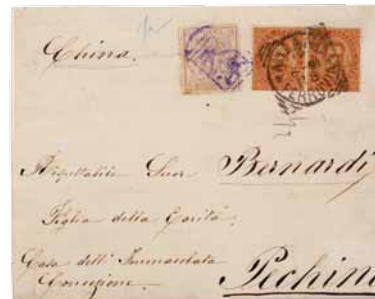 China.
Rispettabile Suor Bernardi
Figlia della Carità
Casa dell' Immacolata
Concezione.
Pechin